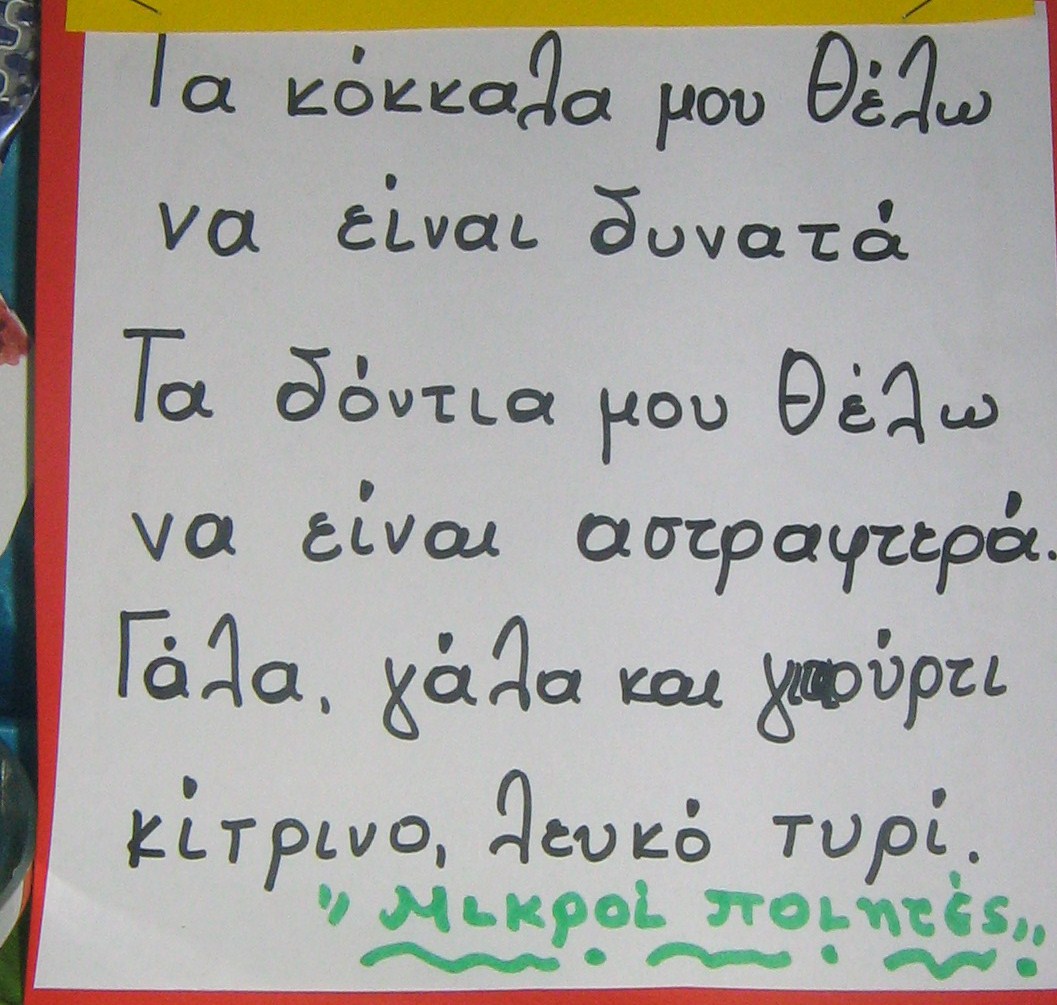 Τα κόκκαλα μου θέλω
να είναι δυνατά
Τα δόντια μου θέλω
να είναι αστραφτερά.
Γάλα, γάλα και γιαούρτι
κίτρινο, λευκό τυρί.
"Μικροί ποιητές"